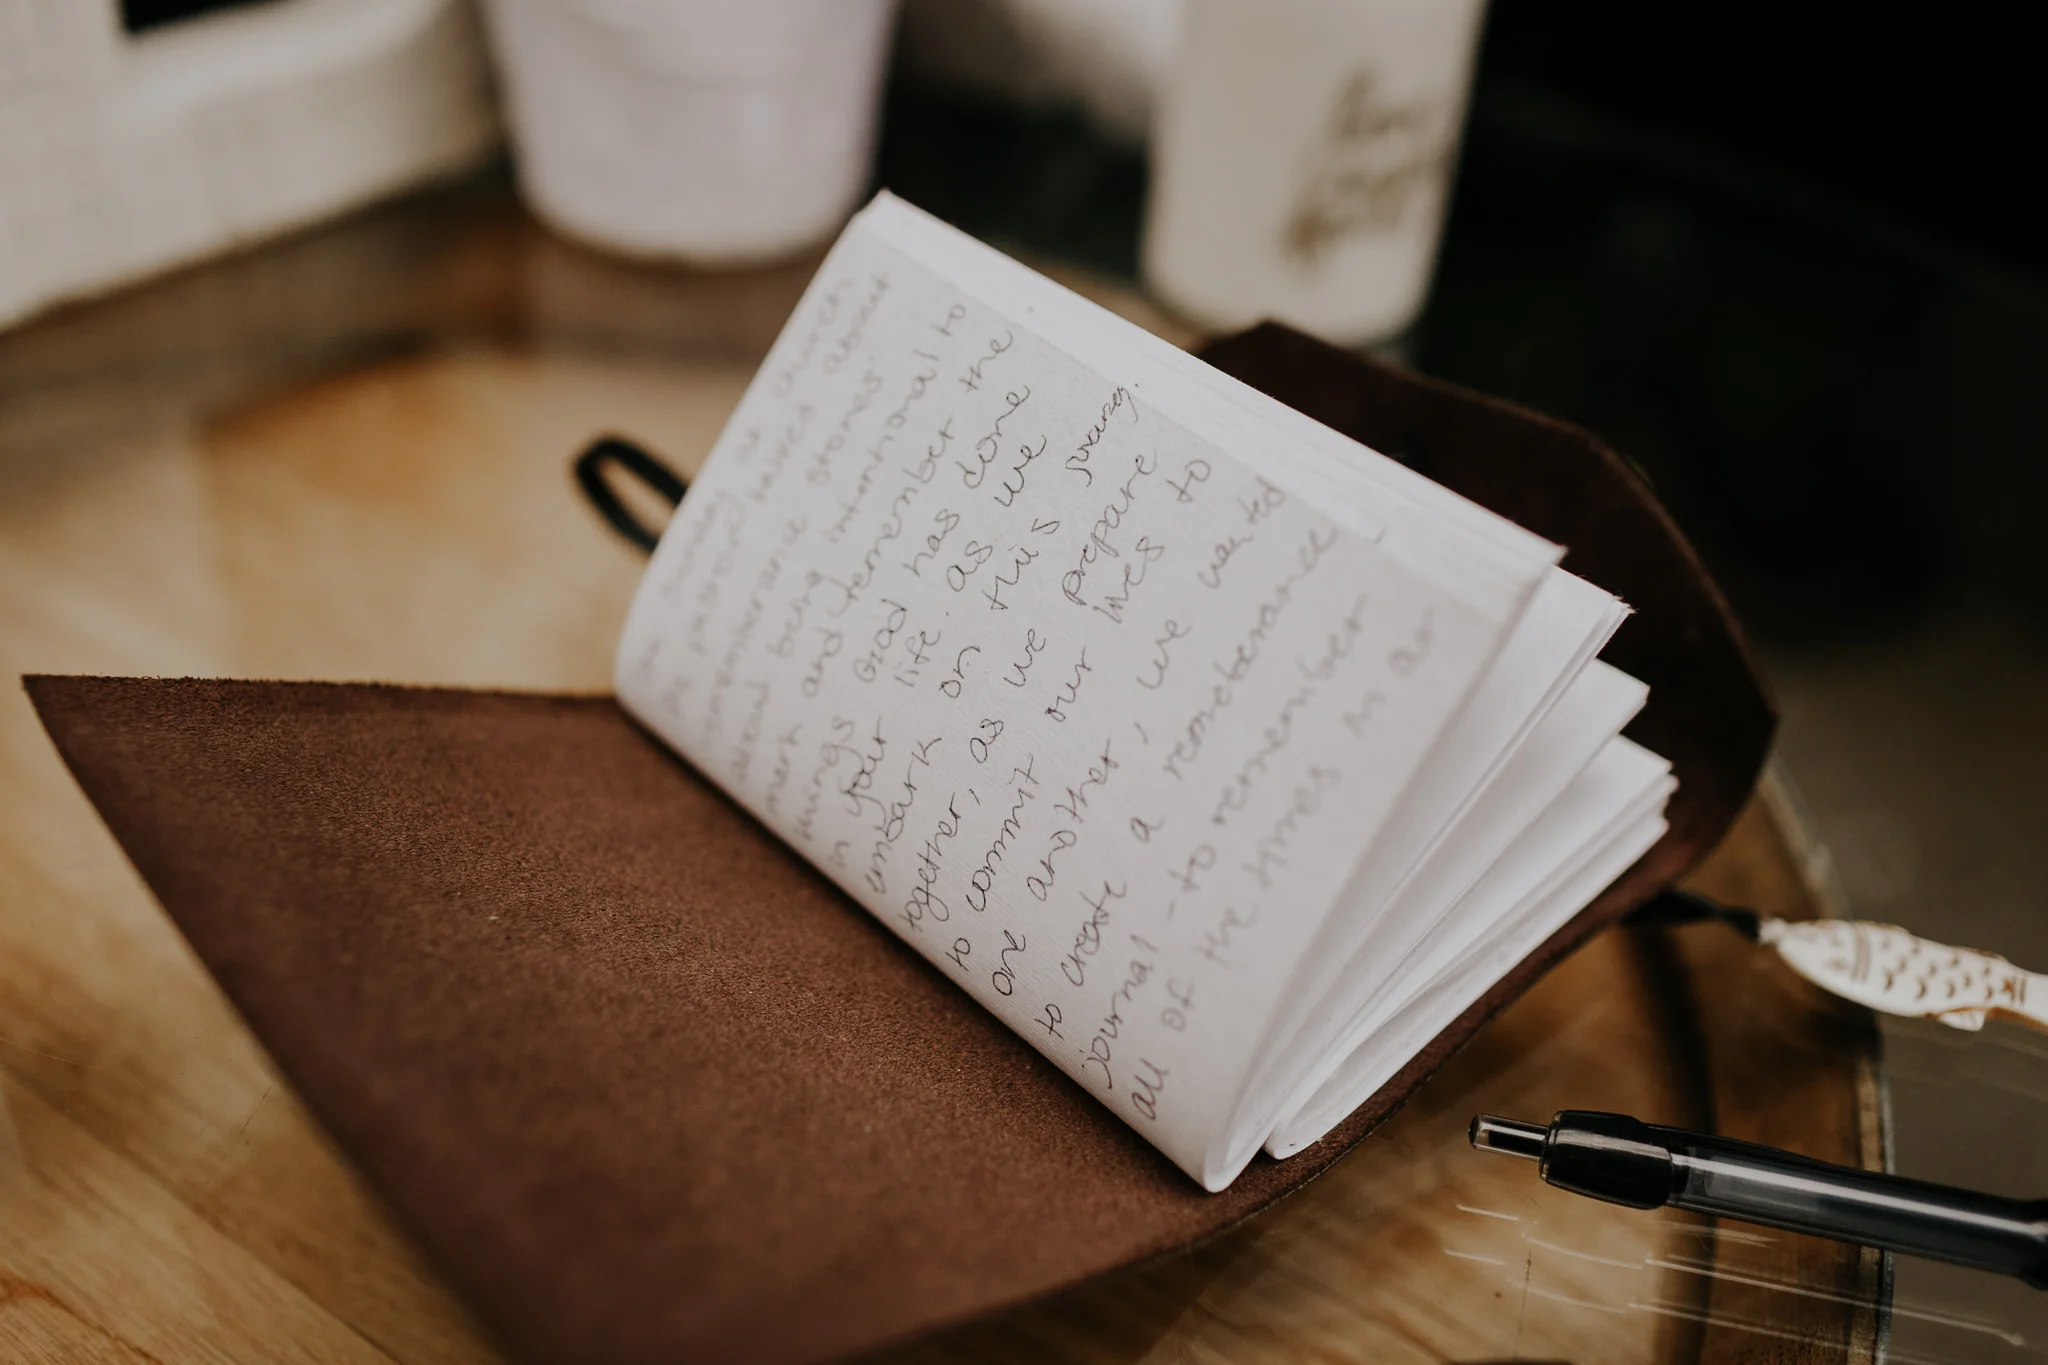 on Sunday at church,
the pastor talked about
rememberance stones
about being intentional to
mark and remember the
things God has done
in your life. as we
embark on this journey
together, as we prepare
to commit our lives to
one another, we wanted
to create a rememberance
journal - to remember
all of the times in our